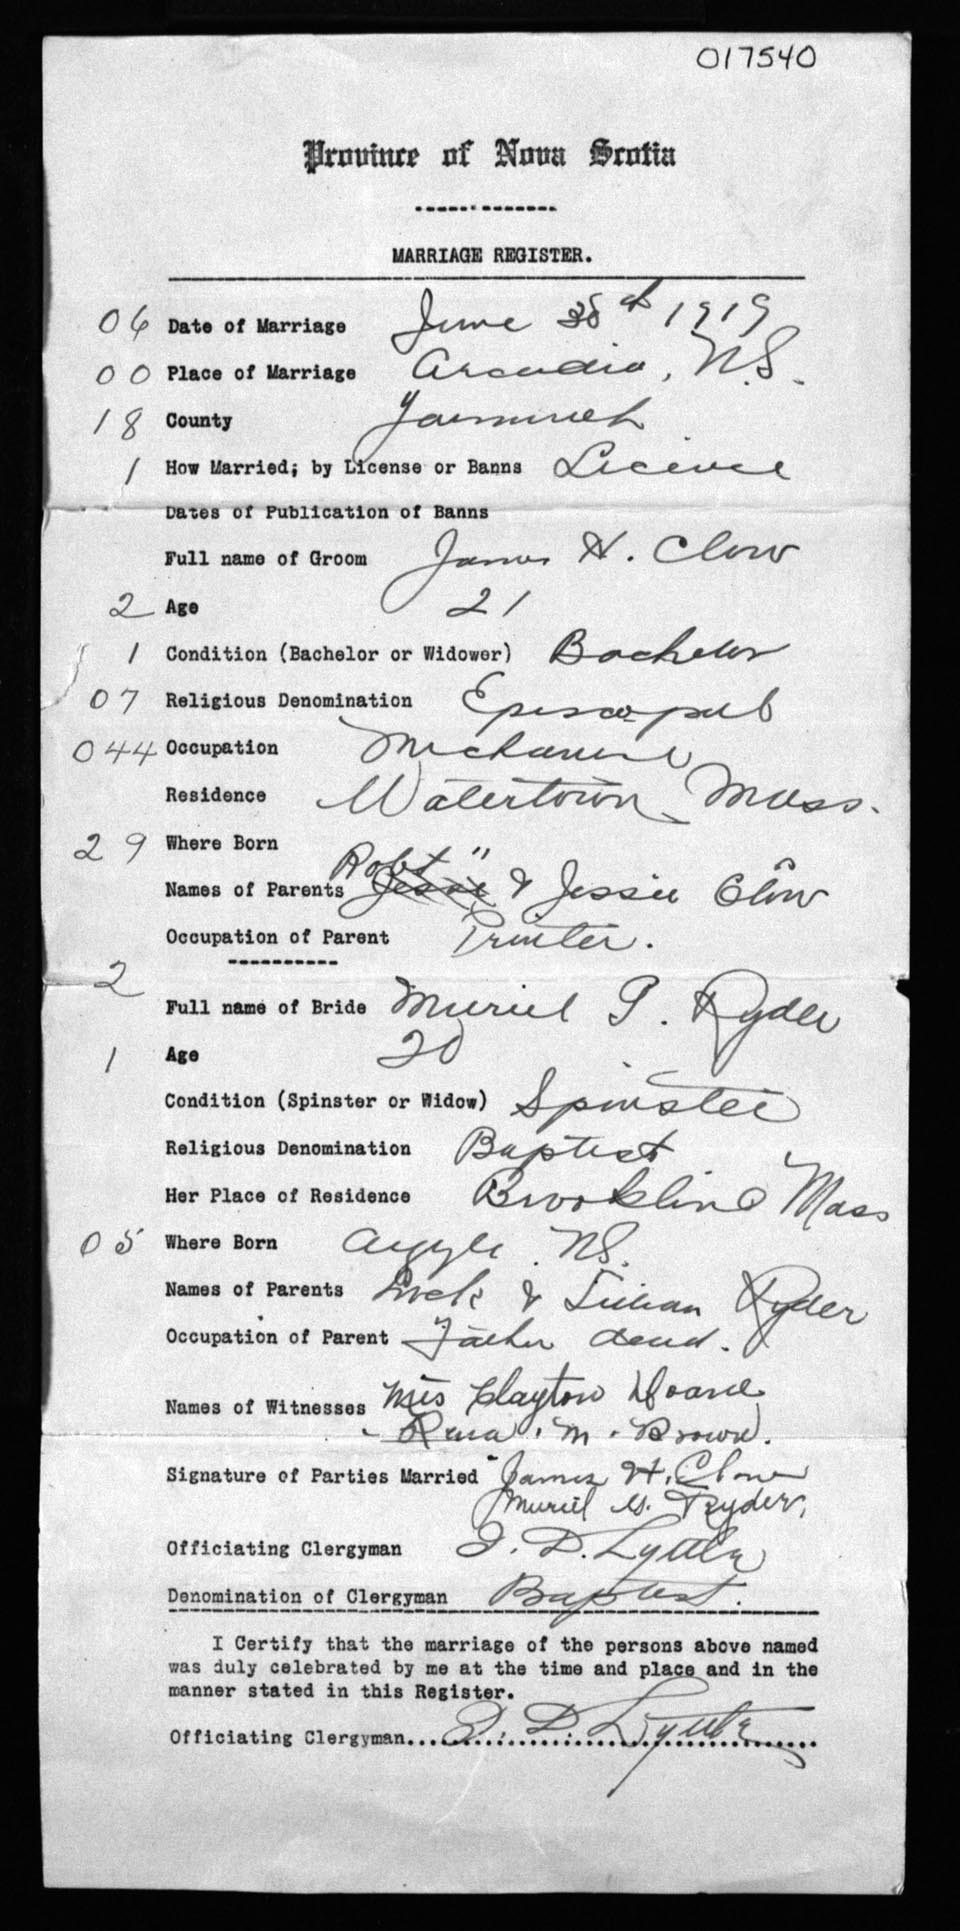 017540
Province of Nova Scotia
MARRIAGE REGISTER.
06 Date of Marriage June 1919
00 Place of Marriage Arcadia, N.S.
18 County Yarmouth
1 How Married; by License or Banns Licence
Dates of Publication of Banns
Full name of Groom James H. Clow
2 Age 21
1 Condition (Bachelor or Widower) Bachelor
07 Religious Denomination Episcopal
044 Occupation Mechanic
Residence Watertown, Mass.
29 Where Born "
Names of Parents Robt & Jessie Clow
Occupation of Parent Printer.
2
Full name of Bride Muriel G. Ryder
1 Age 20
Condition (Spinster or Widow) Spinster
Religious Denomination Baptist
Her Place of Residence Brookline Mass
05 Where Born Argyle N.S.
Names of Parents & Lillian Ryder
Occupation of Parent Father dead.
Names of Witnesses Mrs Clayton Doane
Rena M. Brown.
Signature of Parties Married James H. Clow
Muriel G. Ryder,
Officiating Clergyman D. Lyttle
Denomination of Clergyman Baptist.
I Certify that the marriage of the persons above named
was duly celebrated by me at the time and place and in the
manner stated in this Register.
Officiating Clergyman.... D. Lyttle